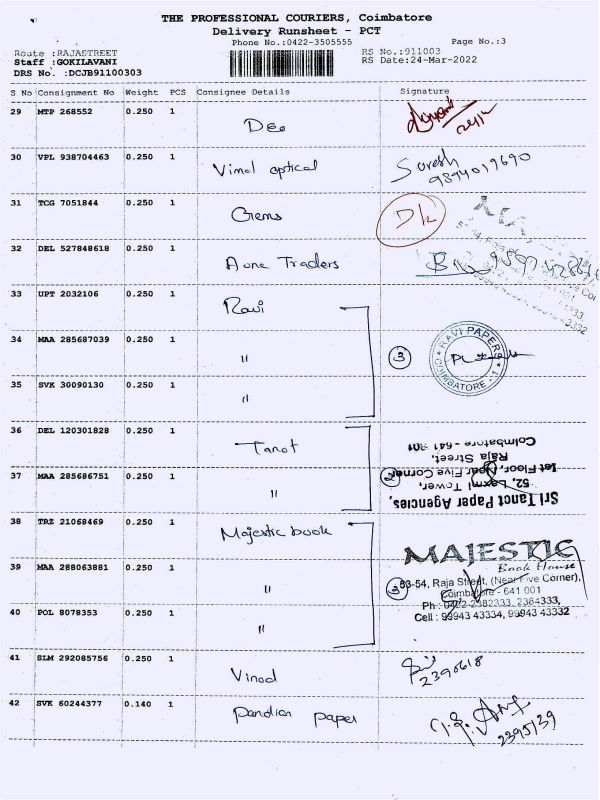 THE PROFESSIONAL COURIERS, Coimbatore
Delivery Runsheet - PCT
Phone No.:0422-3505555
Page No.:3
Route :RAJASTREET
RS No.:911003
Staff :GOKILAVANI
RS Date:24-Mar-2022
DRS No. :DCJB91100303
S No Consignment No Weight PCS Consignee Details Signature
29 MTP 268552 0.250 1
30 VPL 938704463 0.250 1 Vimal optical Suresh
9894019690
31 TCG 7051844 0.250 1 Gems
32 DEL 527848618 0.250 1 Aone Traders
33 UPT 2032106 0.250 1 Ravi
34 MAA 285687039 0.250 1 " 3 RAVI PAPERS COIMBATORE - 1
35 SVK 30090130 0.250 1 "
36 DEL 120301828 0.250 1 Tanot
37 MAA 285686751 0.250 1 " 2
Sri Tanot Paper Agencies,
52, Laxmi Tower,
Ist Floor, Near Five Corner
Raja Street,
Coimbatore - 641 001
38 TRZ 21068469 0.250 1 Majestic book
39 MAA 288063881 0.250 1 " 3
MAJESTIC
Book House
53-54, Raja Street, (Near Five Corner),
Coimbatore - 641 001
Ph : 0422-2382333, 2384333,
Cell : 99943 43334, 99943 43332
40 POL 8078353 0.250 1 "
41 SLM 292085756 0.250 1 Vinod
2390618
42 SVK 60244377 0.140 1 Pandian paper
2395139